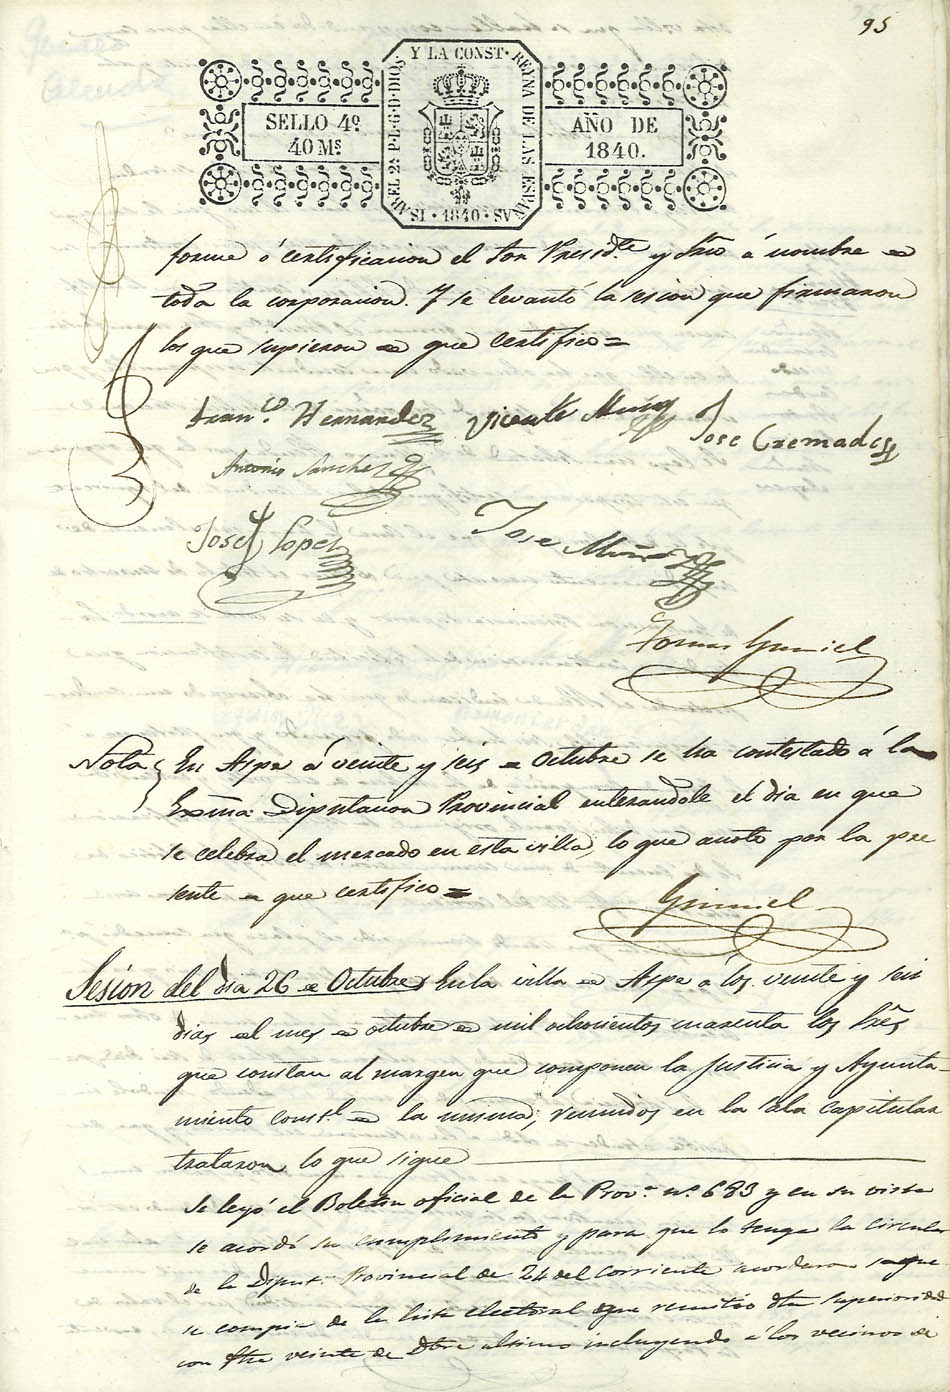 95
Y LA CONST. REYNA DE LAS ESPAÑAS · 1840 · ISABEL 2ª P.L.G.D.DIOS
SELLO 4º
40 Ms
AÑO DE
1840.
forme ó certificacion el Sor Presidte y Srio á nombre de
toda la corporacion. Y se levantó la sesion que firmaron
los que supieron de que certifico =
Franco Hernandez Vicente Muñoz Jose Cremades
Antonio Sanchez
Jose Lopez Jose Muñoz
Tomas Gumiel
Nota En Aspe á veinte y seis de Octubre se ha contestado á la
Exma Diputacion Provincial enterandole el dia en que
se celebra el mercado en esta villa, lo que anoto por la pre
sente de que certifico =
Gumiel
Sesion del dia 26 de Octubre En la villa de Aspe á los veinte y seis
dias del mes de octubre de mil ochocientos cuarenta los Sres
que constan al margen que componen la Justicia y Ayunta-
miento constl de la misma, reunidos en la sala capitular
trataron lo que sigue
Se leyó el Boletin oficial de la Prova nº 683 y en su vista
se acordó su cumplimiento y para que lo tenga la circular
de la Diputn Provincial de 24 del corriente acordaron saque
se copia de la lista electoral que remitió dha superioridad
con fha veinte de Dbre ultimo incluyendo á los vecinos de